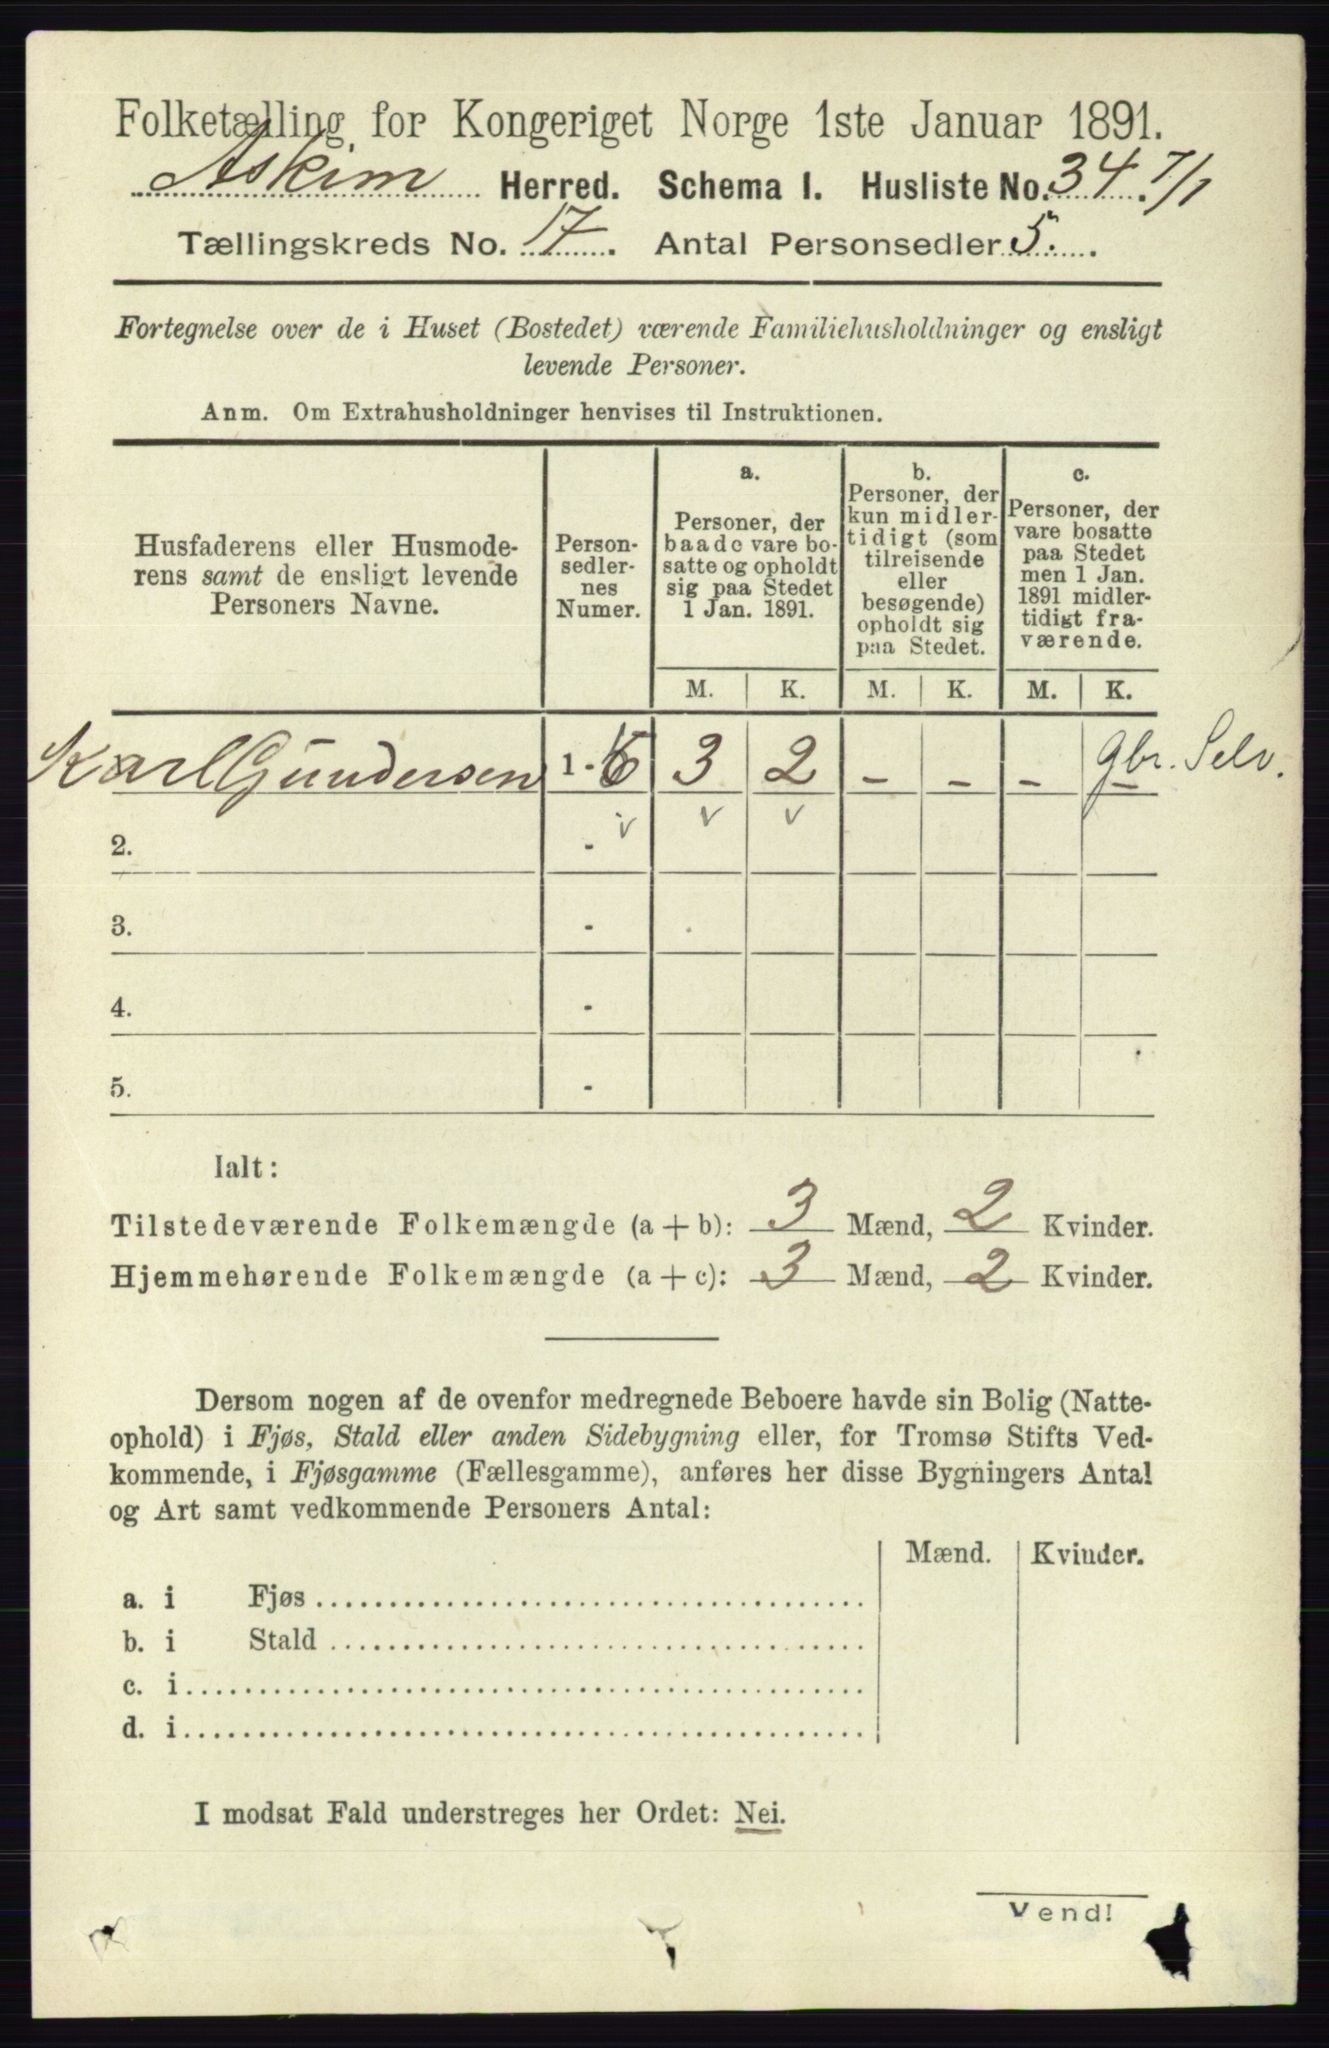 Folketælling for Kongeriget Norge 1ste Januar 1891.
Askim Herred. Schema I. Husliste No. 34. 7/1
Tællingskreds No. 17. Antal Personsedler 5.
Fortegnelse over de i Huset (Bostedet) værende Familiehusholdninger og ensligt
levende Personer.
Anm. Om Extrahusholdninger henvises til Instruktionen.
Husfaderens eller Husmode-
rens samt de ensligt levende
Personers Navne.
Person-
sedler-
nes
Numer.
a.
Personer, der
baade vare bo-
satte og opholdt
sig paa Stedet
1 Jan. 1891.
b.
Personer, der
kun midler-
tidigt (som
tilreisende
eller
besøgende)
opholdt sig
paa Stedet.
c.
Personer, der
vare bosatte
paa Stedet
men 1 Jan.
1891 midler-
tidigt fra-
værende.
M. K. M. K. M. K.
Karl Gundersen 1 - 5 3 2 - - - - Gbr. Selv.
v v v
2. -
3. -
4. -
5. -
Ialt:
Tilstedeværende Folkemængde (a + b): 3 Mænd, 2 Kvinder.
Hjemmehørende Folkemængde (a + c): 3 Mænd, 2 Kvinder.
Dersom nogen af de ovenfor medregnede Beboere havde sin Bolig (Natte-
ophold) i Fjøs, Stald eller anden Sidebygning eller, for Tromsø Stifts Ved-
kommende, i Fjøsgamme (Fællesgamme), anføres her disse Bygningers Antal
og Art samt vedkommende Personers Antal:
Mænd. Kvinder.
a. i Fjøs
b. i Stald
c. i
d. i
I modsat Fald understreges her Ordet: Nei.
Vend!